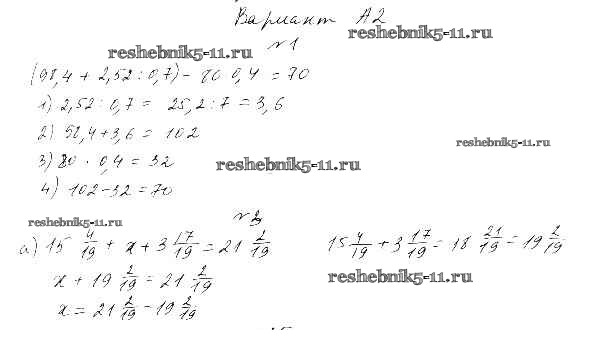 Вариант А2
reshebnik5-11.ru
№1
reshebnik5-11.ru
(98,4 + 2,52 : 0,7) - 80 0,4 = 70
1) 2,52 : 0,7 = 25,2 : 7 = 3,6
2) 98,4 + 3,6 = 102
reshebnik5-11.ru
3) 80 · 0,4 = 32
reshebnik5-11.ru
4) 102 - 32 = 70
reshebnik5-11.ru
а) 15 4/19 + x + 3 17/19 = 21 2/19
15 4/19 + 3 17/19 = 18 21/19 = 19 2/19
x + 19 2/19 = 21 2/19
reshebnik5-11.ru
x = 21 2/19 - 19 2/19